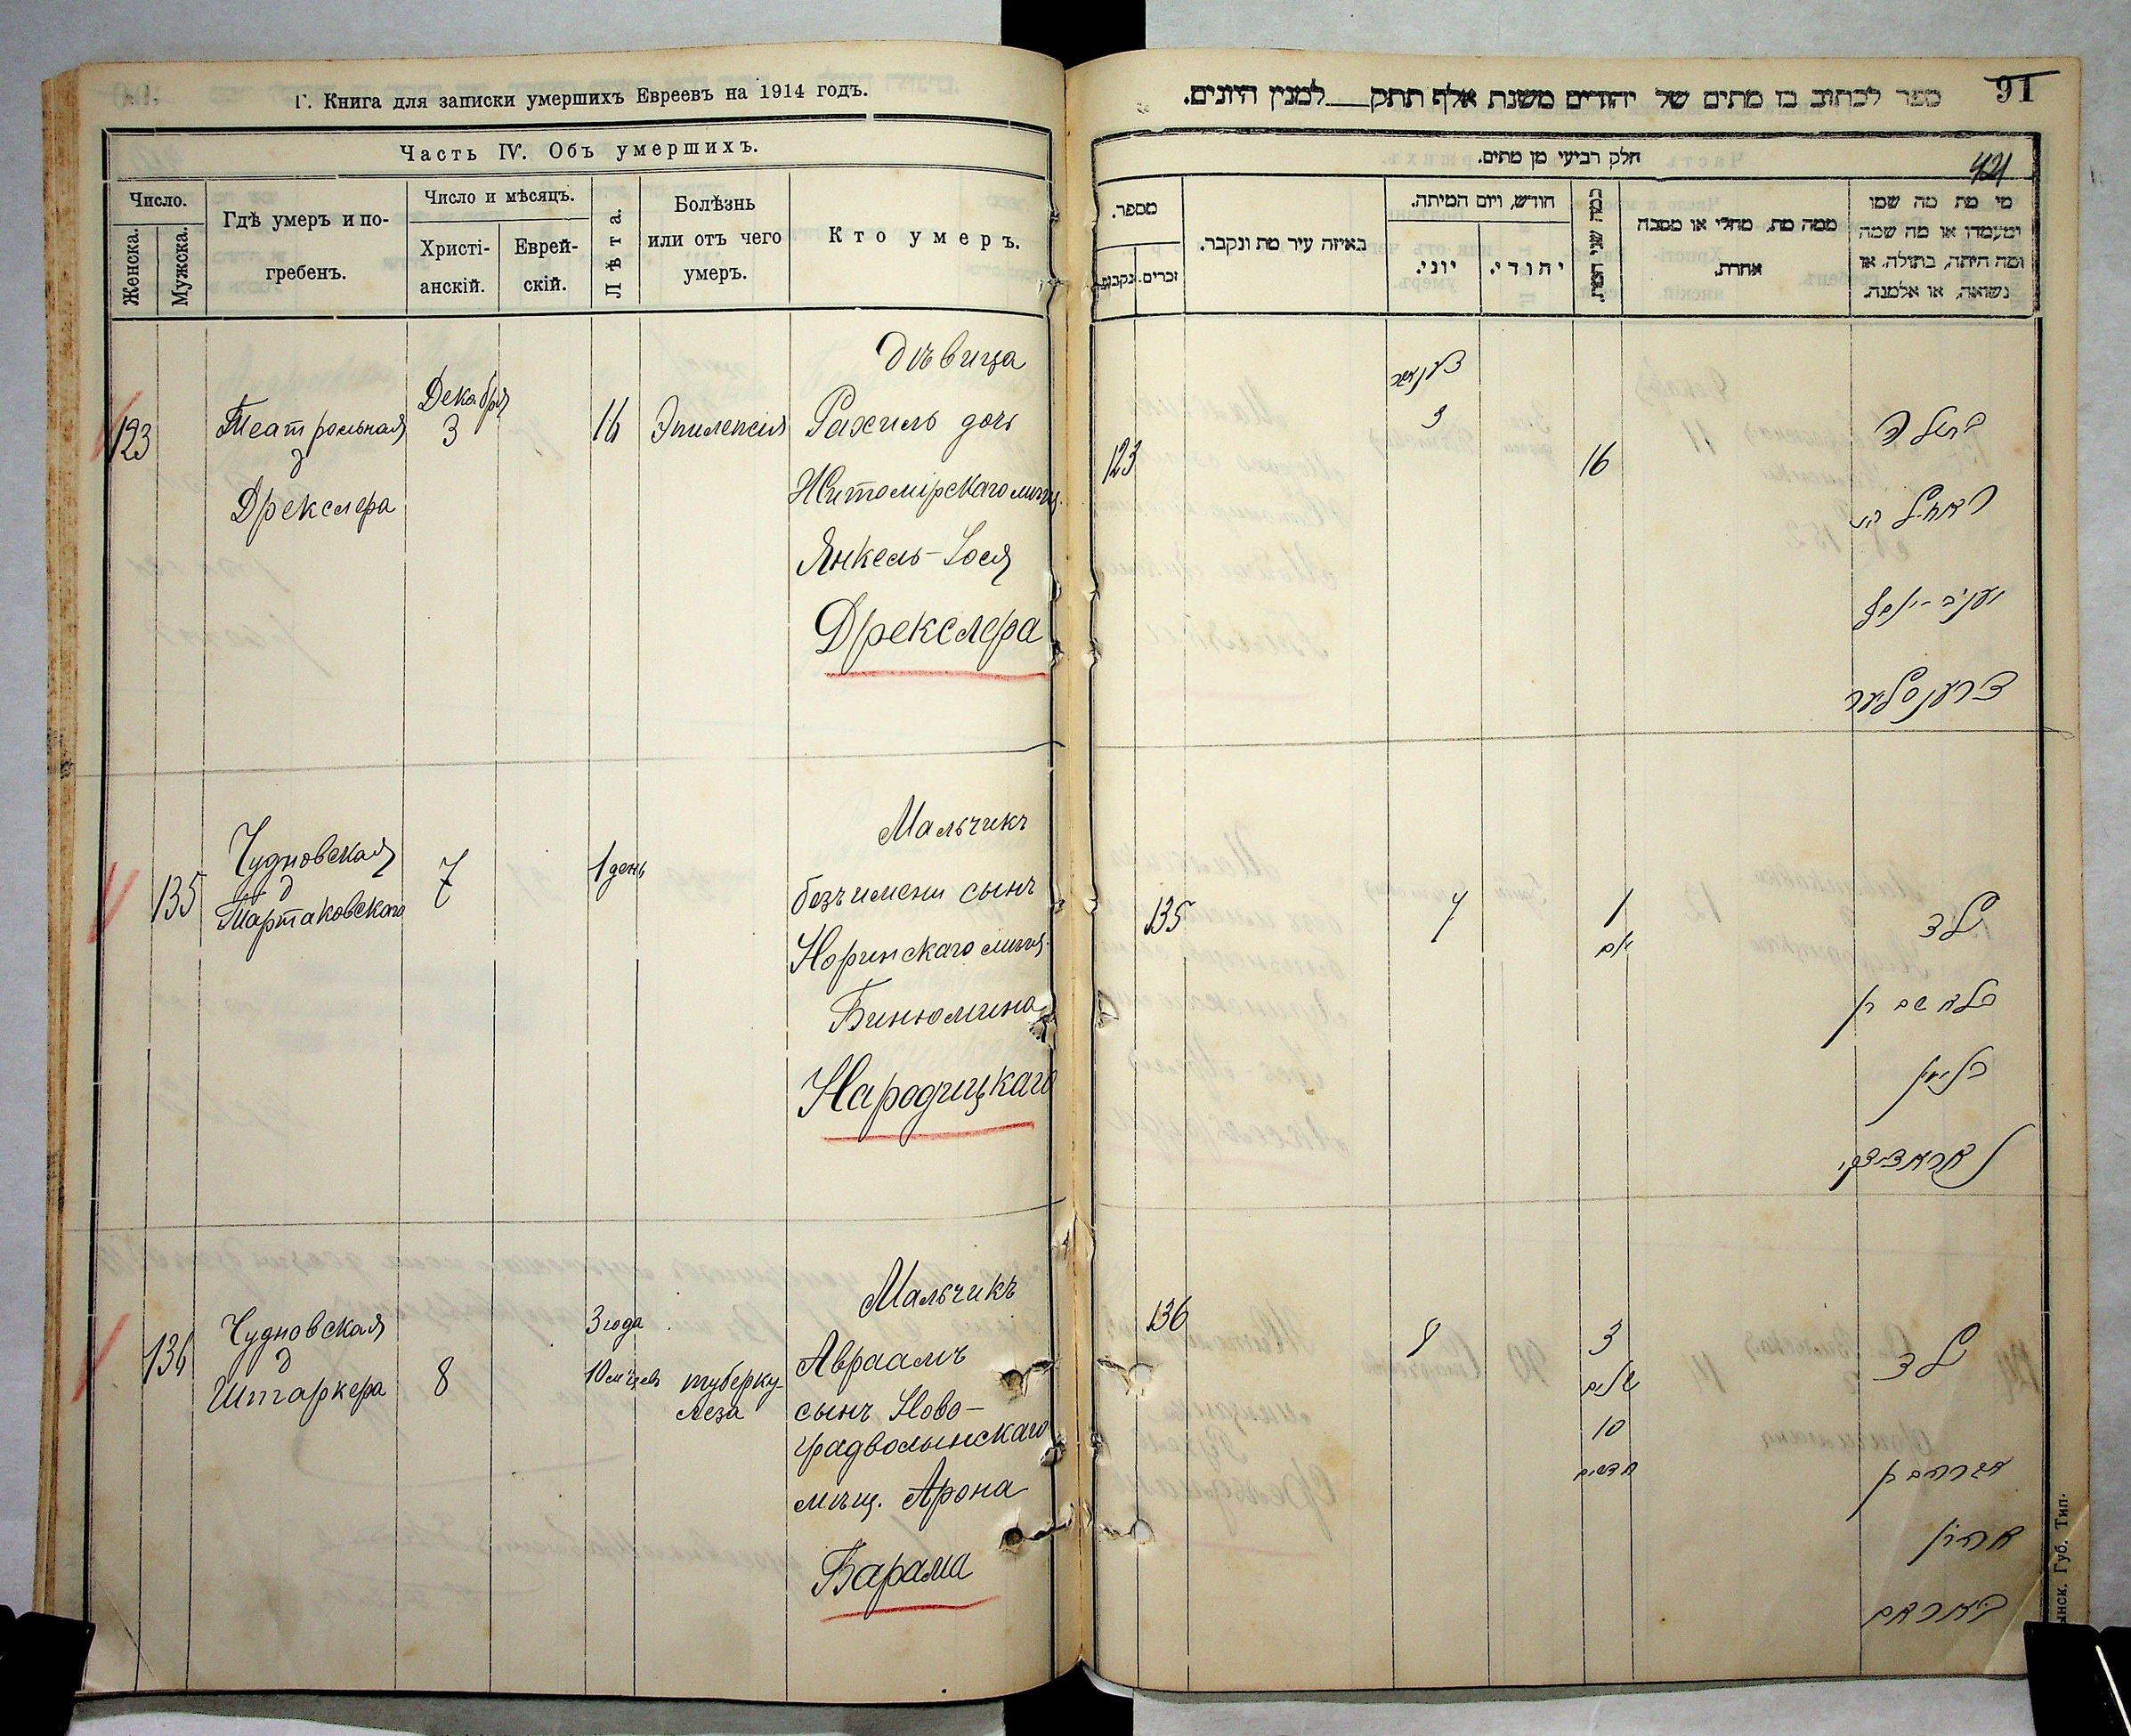 Г. Книга для записки умершихъ Евреевъ на 1914 годъ.
Часть IV. Объ умершихъ.
Число.
Женска.
Мужска.
Гдѣ умеръ и по-
гребенъ.
Число и мѣсяцъ.
Христі-
анскій.
Еврей-
скій.
Лѣта.
Болѣзнь
или отъ чего
умеръ.
Кто умеръ.
123
Театральная
д
Дрекслера
Декабря
3
16
Эпилепсія
Дѣвица
Рахиль дочь
Житомірскаго мѣщ.
Янкель-Іося
Дрекслера
135
Чудновская
д
Мартаковскаго
7
1 день
Мальчикъ
безъ имени сынъ
Норинскаго мѣщ.
Бинюмина
Народицкаго
136
Чудновская
д
Штаркера
8
3 года
10 м-цевъ
туберку-
леза
Мальчикъ
Авраамъ
сынъ Ново-
градволынскаго
мѣщ. Арона
Барама
91
ספר לכתוב בו מתים של יהודים משנת אלף תתק למנין היונים.
421
חלק רביעי מן מתים.
מספר.
נקבות.
זכרים.
באיזה עיר מת ונקבר.
חודש, ויום המיתה.
יוני.
יהודי.
כמה שני המת.
ממה מת, מחלי או מסבה
אחרת.
מי מת מה שמו
ומעמדו או מה שמה
ומה היתה, בתולה, או
נשואה, או אלמנה.
123
דעקאבר
3
16
בתולה
ראחיל בת
יעקב-יוסף
דרעקסלער
135
7
1
יום
ילד
בלא שם בן
בנימין
נאראדיצקי
136
8
3
שנים
10
חדשים
ילד
אברהם בן
אהרן
באראם
ынск. Губ. Тип.